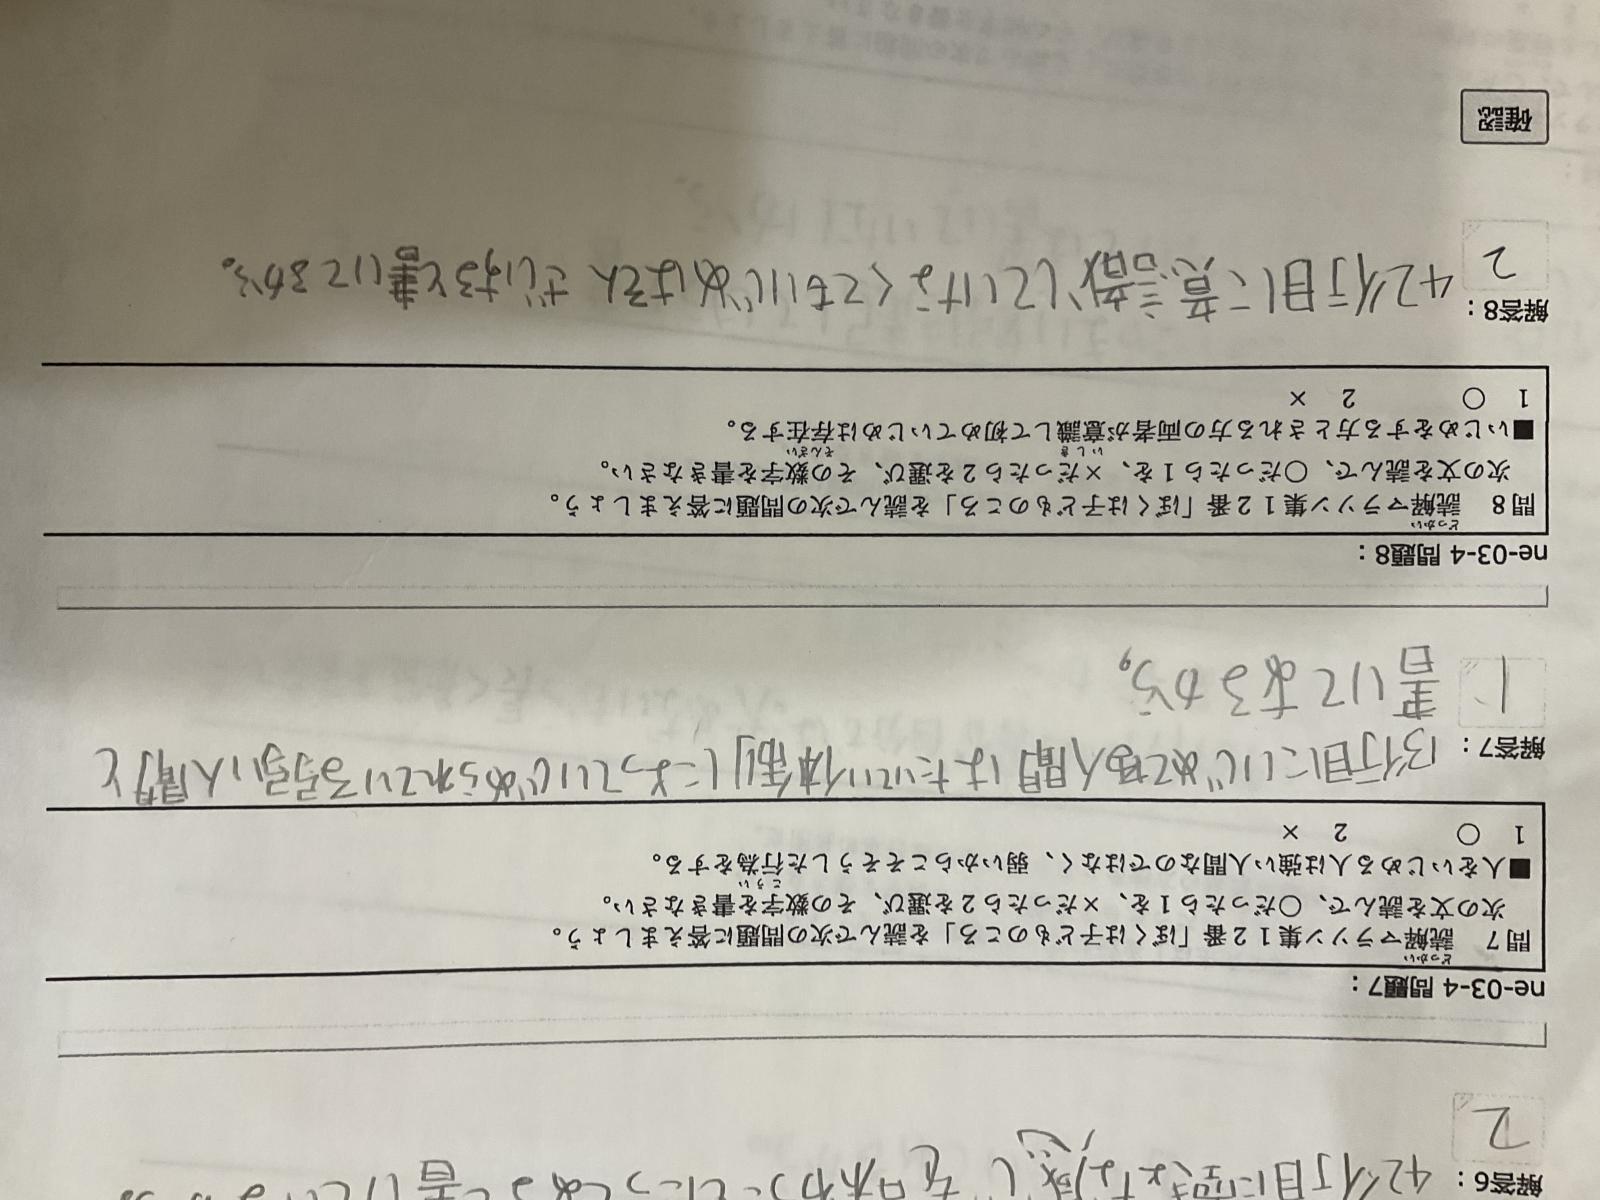 解答6：
42行目に
2
ne-03-4 問題7：
問7　読解マラソン集12番「ぼくは子どものころ」を読んで次の問題に答えましょう。
どっかい
次の文を読んで、〇だったら1を、×だったら2を選び、その数字を書きなさい。
■人をいじめる人は強い人間なのではなく、弱いからこそそうした行為をする。
こうい
1　〇　2　×
解答7：
13行目にいじめてる人間はたいてい体制によっていじめられている弱い人間と
1
書いてあるから。
ne-03-4 問題8：
問8　読解マラソン集12番「ぼくは子どものころ」を読んで次の問題に答えましょう。
どっかい
次の文を読んで、〇だったら1を、×だったら2を選び、その数字を書きなさい。
■いじめをする方とされる方の両者が意識して初めていじめは存在する。
いしき
そんざい
1　〇　2　×
解答8：
42行目に意識していなくてもいじめはそんざいすると書いてるから。
2
確認